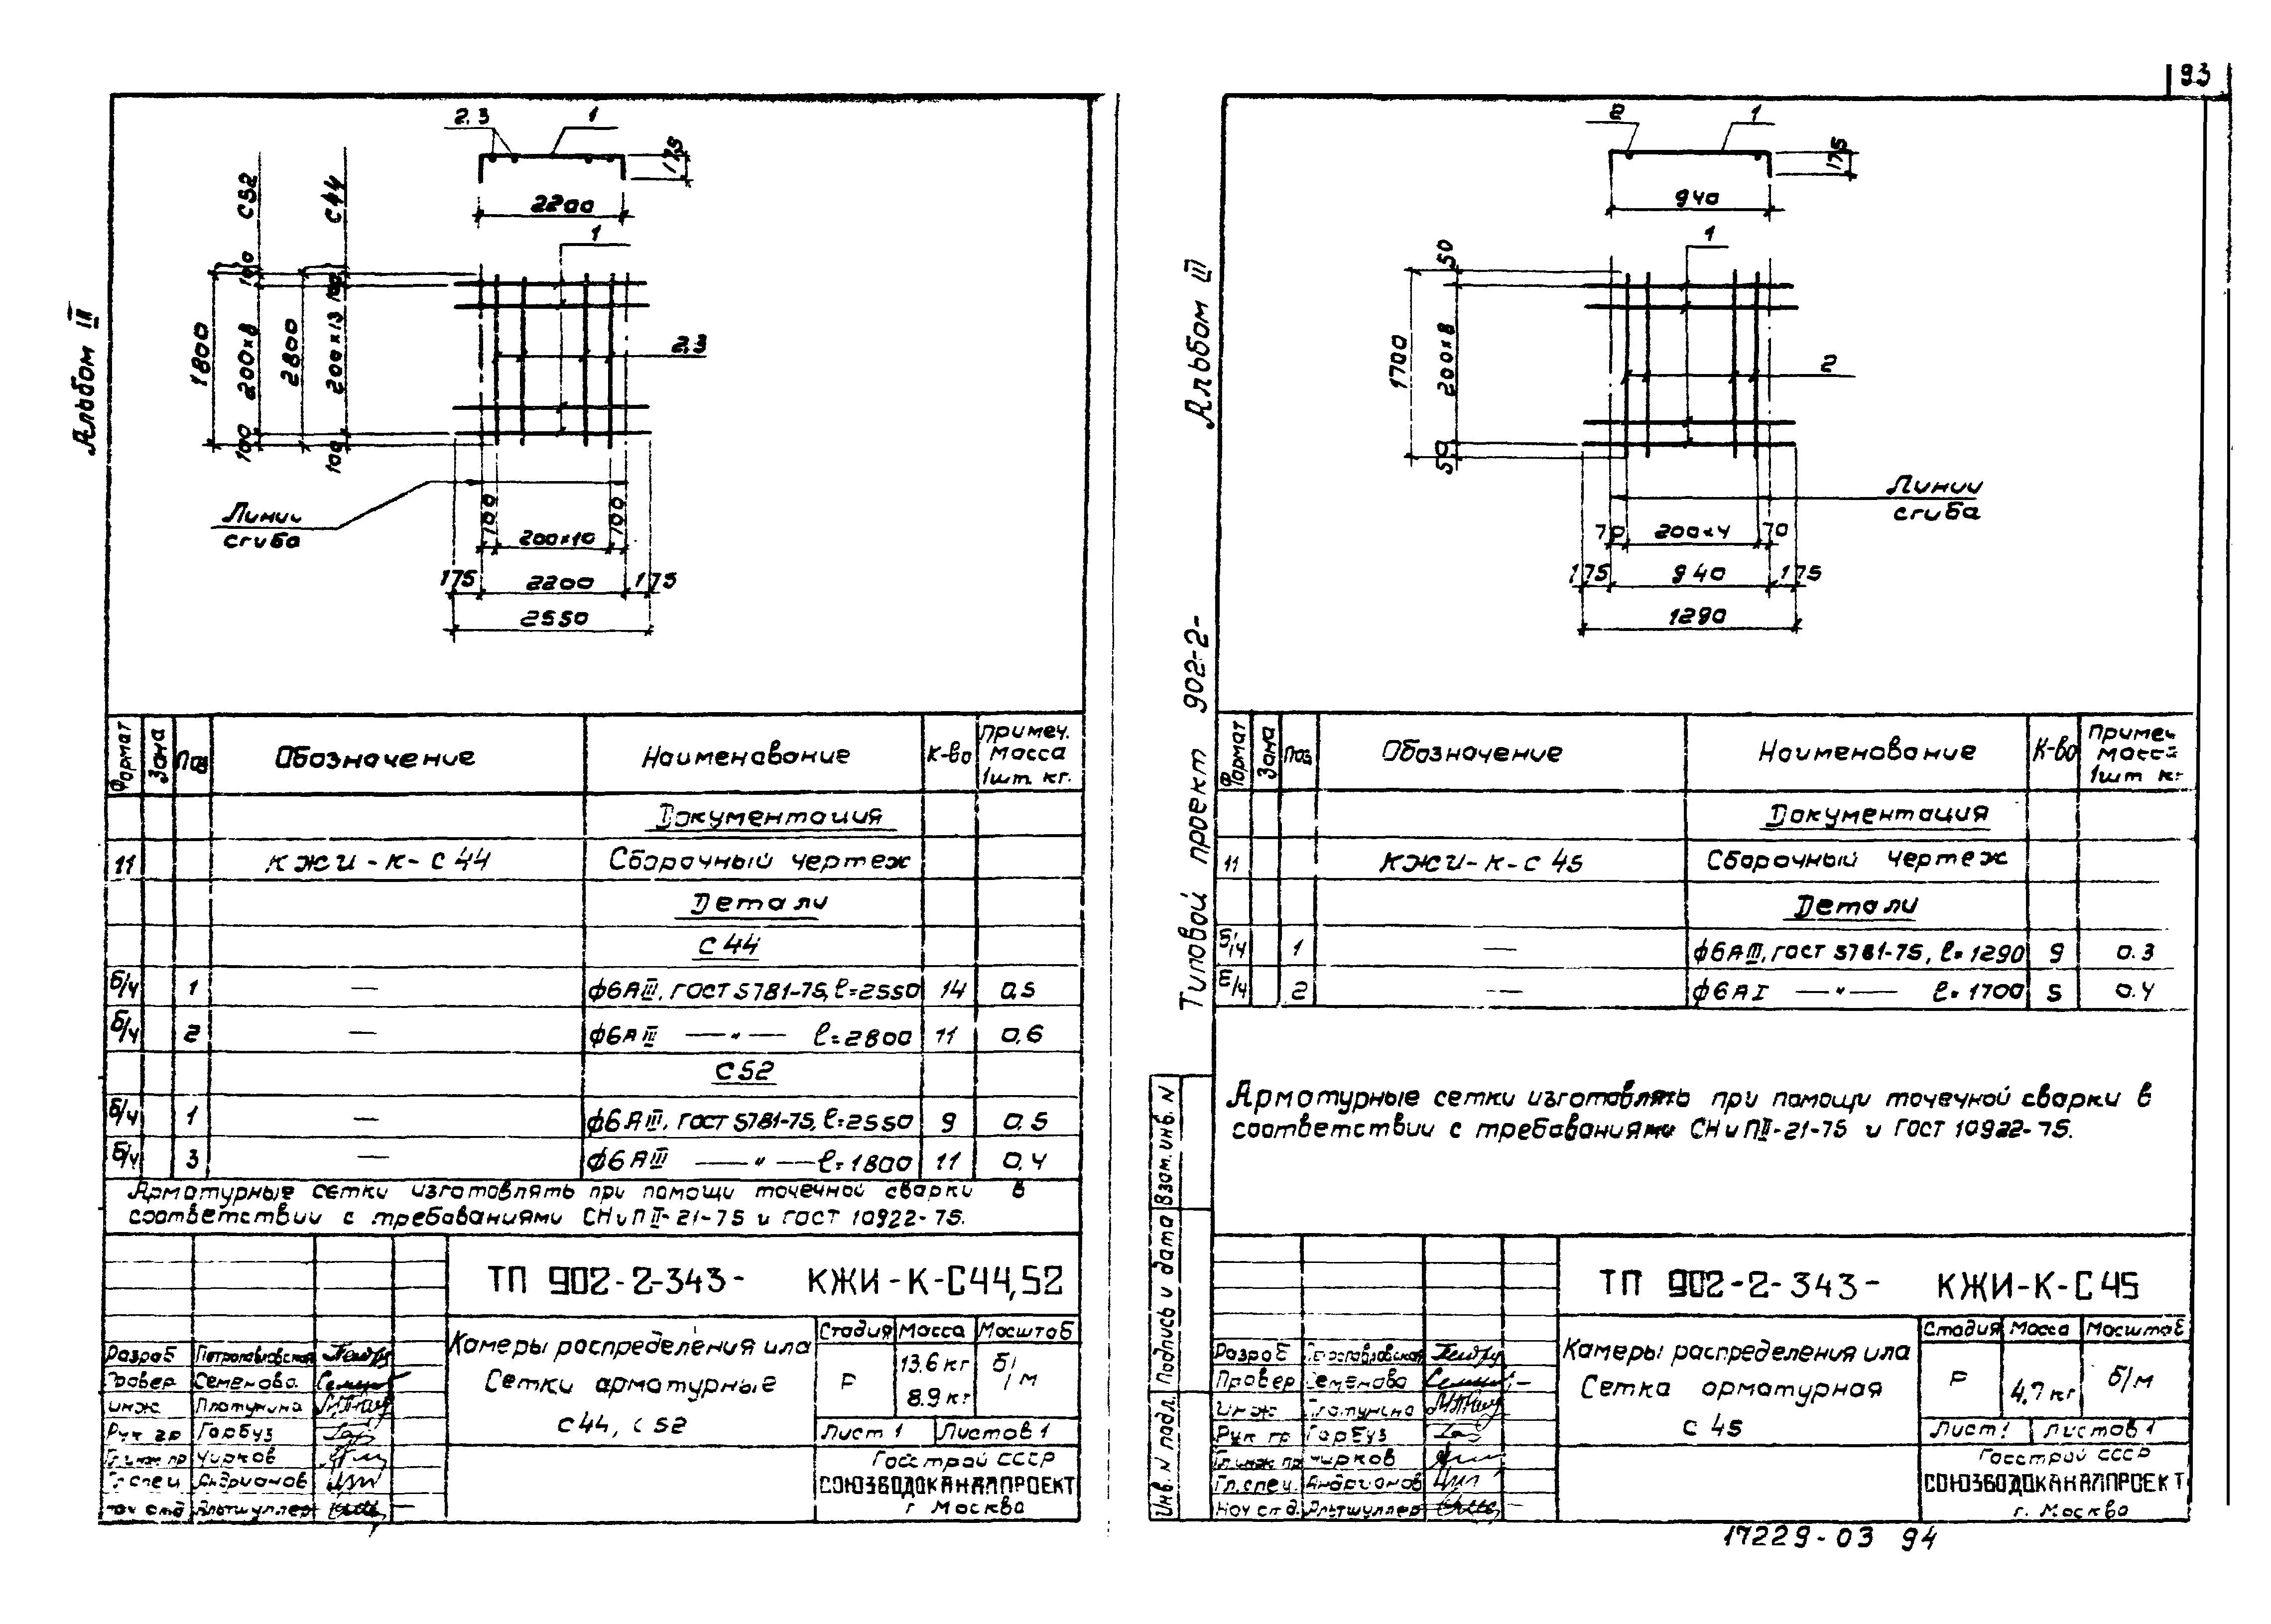 93
Альбом III
2.3 1
175
2200
С52 С44
1
100 100
1800 200×8 2800 200×13
2.3
100 100
Линии
сгиба
100 200×10 100
175 2200 175
2550
Формат Зона Поз Обозначение Наименование К-во Примеч. масса 1шт. кг.
Документация
11 КЖИ-К-С44 Сборочный чертеж
Детали
С44
б/ч 1 — ф6АIII, ГОСТ 5781-75, ℓ=2550 14 0,5
б/ч 2 — ф6АIII —"— ℓ=2800 11 0,6
С52
б/ч 1 — ф6АIII, ГОСТ 5781-75, ℓ=2550 9 0.5
б/ч 3 — ф6АIII —"— ℓ=1800 11 0,4
Арматурные сетки изготовлять при помощи точечной сварки в
соответствии с требованиями СНиП II-21-75 и ГОСТ 10922-75.
ТП 902-2-343- КЖИ-К-С44,52
Камеры распределения ила
Сетки арматурные
С44, С52
Стадия Масса Масштаб
Р 13.6 кг б/м
8.9 кг
Лист 1 Листов 1
Госстрой СССР
СОЮЗВОДОКАНАЛПРОЕКТ
г Москва
Разраб Петропавловская
Провер Семенова
Инж Платунина
Рук гр Гарбуз
Гл.инж пр Чирков
Гл спец Андрианов
Нач отд Альтшуллер
Альбом III
Типовой проект 902-2-
2 1
175
940
1
50
1700 200×8
2
50
Линии
сгиба
70 200×4 70
175 940 175
1290
Формат Зона Поз Обозначение Наименование К-во Примеч масса 1шт кг
Документация
11 КЖИ-К-С45 Сборочный чертеж
Детали
Б/ч 1 — ф6АIII, ГОСТ 5781-75, ℓ=1290 9 0.3
Б/ч 2 — ф6АI —"— ℓ=1700 5 0.4
Арматурные сетки изготовлять при помощи точечной сварки в
соответствии с требованиями СНиП II-21-75 и ГОСТ 10922-75.
Инв. N подл. Подпись и дата Взам. инв. N
ТП 902-2-343- КЖИ-К-С45
Камеры распределения ила
Сетка арматурная
С 45
Стадия Масса Масштаб
Р 4,7 кг б/м
Лист 1 Листов 1
Госстрой СССР
СОЮЗВОДОКАНАЛПРОЕКТ
г. Москва
Разраб Петропавловская
Провер Семенова
Инж Платунина
Рук гр Гарбуз
Гл.инж пр Чирков
Гл.спец. Андрианов
Нач отд. Альтшуллер
17229-03 94